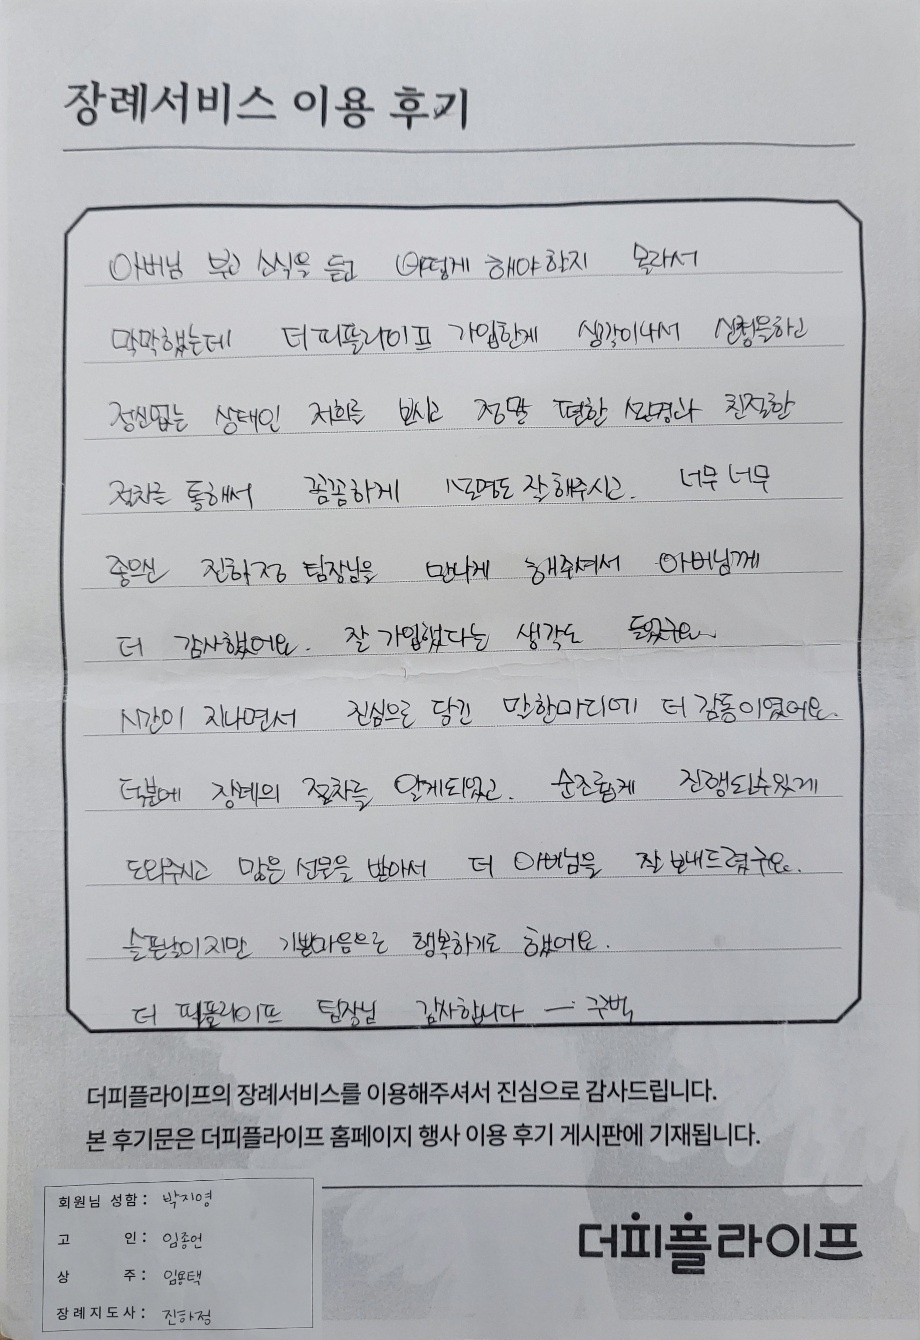 장례서비스 이용 후기
아버님 부고 소식을 듣고 어떻게 해야할지 몰라서
막막했는데 더피플라이프 가입한게 생각이나서 신청을하고
정신없는 상태인 저희를 보시고 정말 편한 설명과 친절한
절차를 통해서 꼼꼼하게 설명도 잘해주시고. 너무 너무
좋으신 진하정 팀장님을 만나게 해주셔서 아버님께
더 감사했어요. 잘 가입했다는 생각도 들었구요.
시간이 지나면서 진심으로 담긴 말한마디에 더 감동이였어요.
덕분에 장례의 절차를 알게되었고. 순조롭게 진행되수있게
도와주시고 많은 선물을 받아서 더 아버님을 잘 보내드렸구요.
슬픈날이지만 기쁜마음으로 행복하기도 했어요.
더 피플라이프 팀장님 감사합니다 — 구벅
더피플라이프의 장례서비스를 이용해주셔서 진심으로 감사드립니다.
본 후기문은 더피플라이프 홈페이지 행사 이용 후기 게시판에 기재됩니다.
회원님 성함 : 박지영
고 인 : 임종언
상 주 : 임용택
장례지도사 : 진하정
더피플라이프